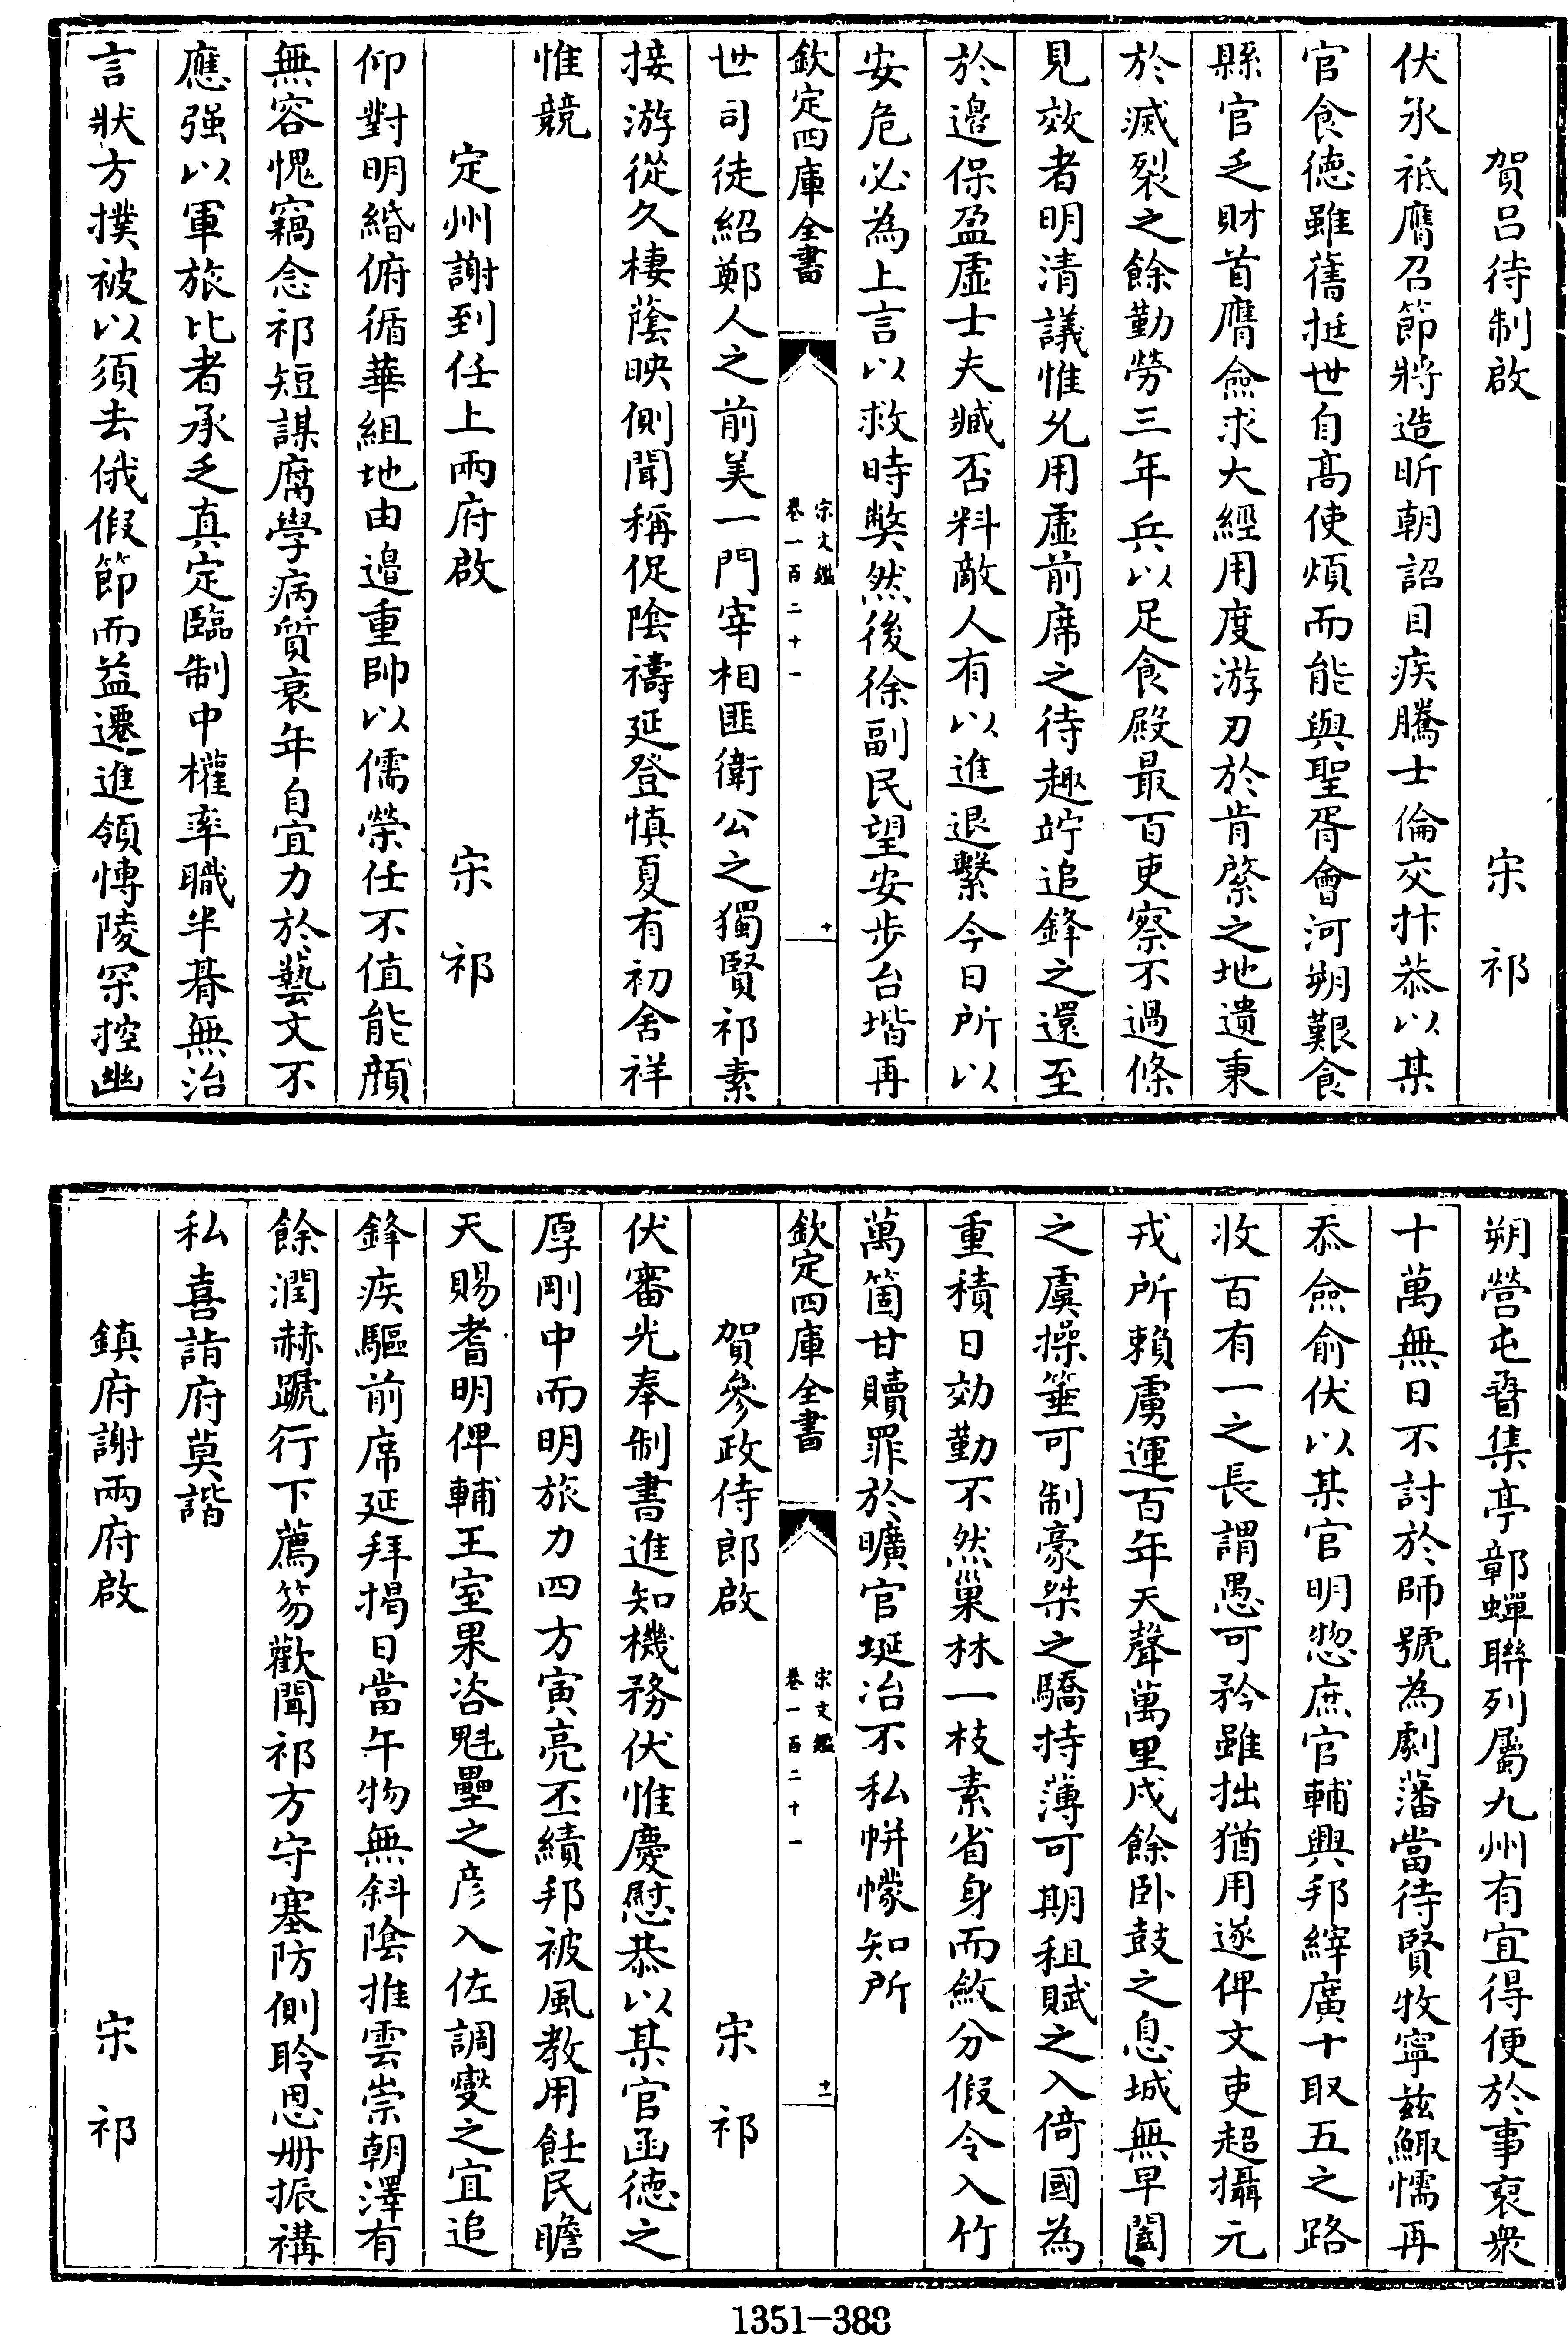 賀呂待制啟 宋祁
伏承祇膺召節將造昕朝詔目疾騰士倫交抃恭以某
官食德雖舊挺世自高使煩而能與聖胥會河朔艱食
縣官乏財首膺僉求大經用度游刃於肯綮之地遺秉
於滅裂之餘勤勞三年兵以足食殿最百吏察不過條
見效者明清議惟允用虛前席之待趣竚追鋒之還至
於邊保盈虛士夫臧否料敵人有以進退繫今日所以
安危必為上言以救時獘然後徐副民望安步台堦再
欽定四庫全書 宋文鑑 卷一百二十一 十
世司徒紹鄭人之前美一門宰相匪衛公之獨賢祁素
接游從久棲蔭映側聞稱促陰禱延登慎夏有初舍祥
惟競
定州謝到任上兩府啟 宋祁
仰對明緡俯循華組地由邉重帥以儒榮任不值能顔
無容愧竊念祁短謀腐學病質衰年自宜力於藝文不
應强以軍旅比者承乏真定臨制中權率職半朞無治
言狀方撲被以須去俄假節而益遷進領慱陵罙控幽
朔營屯㬱集亭鄣蟬聯列屬九州有宜得便於事裒衆
十萬無日不討於師號為劇藩當待賢牧寧兹鯫懦再
忝僉俞伏以某官明惣庶官輔興邦緯廣十取五之路
收百有一之長謂愚可矜雖拙猶用遂俾文吏超攝元
戎所賴虜運百年天聲萬里戍餘卧鼓之息城無早闔
之虞操箠可制豪桀之驕持薄可期租賦之入倚國為
重積日効勤不然巢林一枝素省身而斂分假令入竹
萬箇甘贖罪於曠官埏冶不私帡幪知所
欽定四庫全書 宋文鑑 卷一百二十一 十一
賀參政侍郎啟 宋祁
伏審光奉制書進知機務伏惟慶慰恭以某官函德之
厚剛中而明旅力四方寅亮丕績邦被風教用飪民瞻
天賜耆明俾輔王室果咨魁壘之彦入佐調燮之宜追
鋒疾驅前席延拜揭日當午物無斜陰推雲崇朝澤有
餘潤赫蹏行下薦笏歡聞祁方守塞防側聆恩册振褠
私喜詣府莫諧
鎮府謝兩府啟 宋祁
1351—388